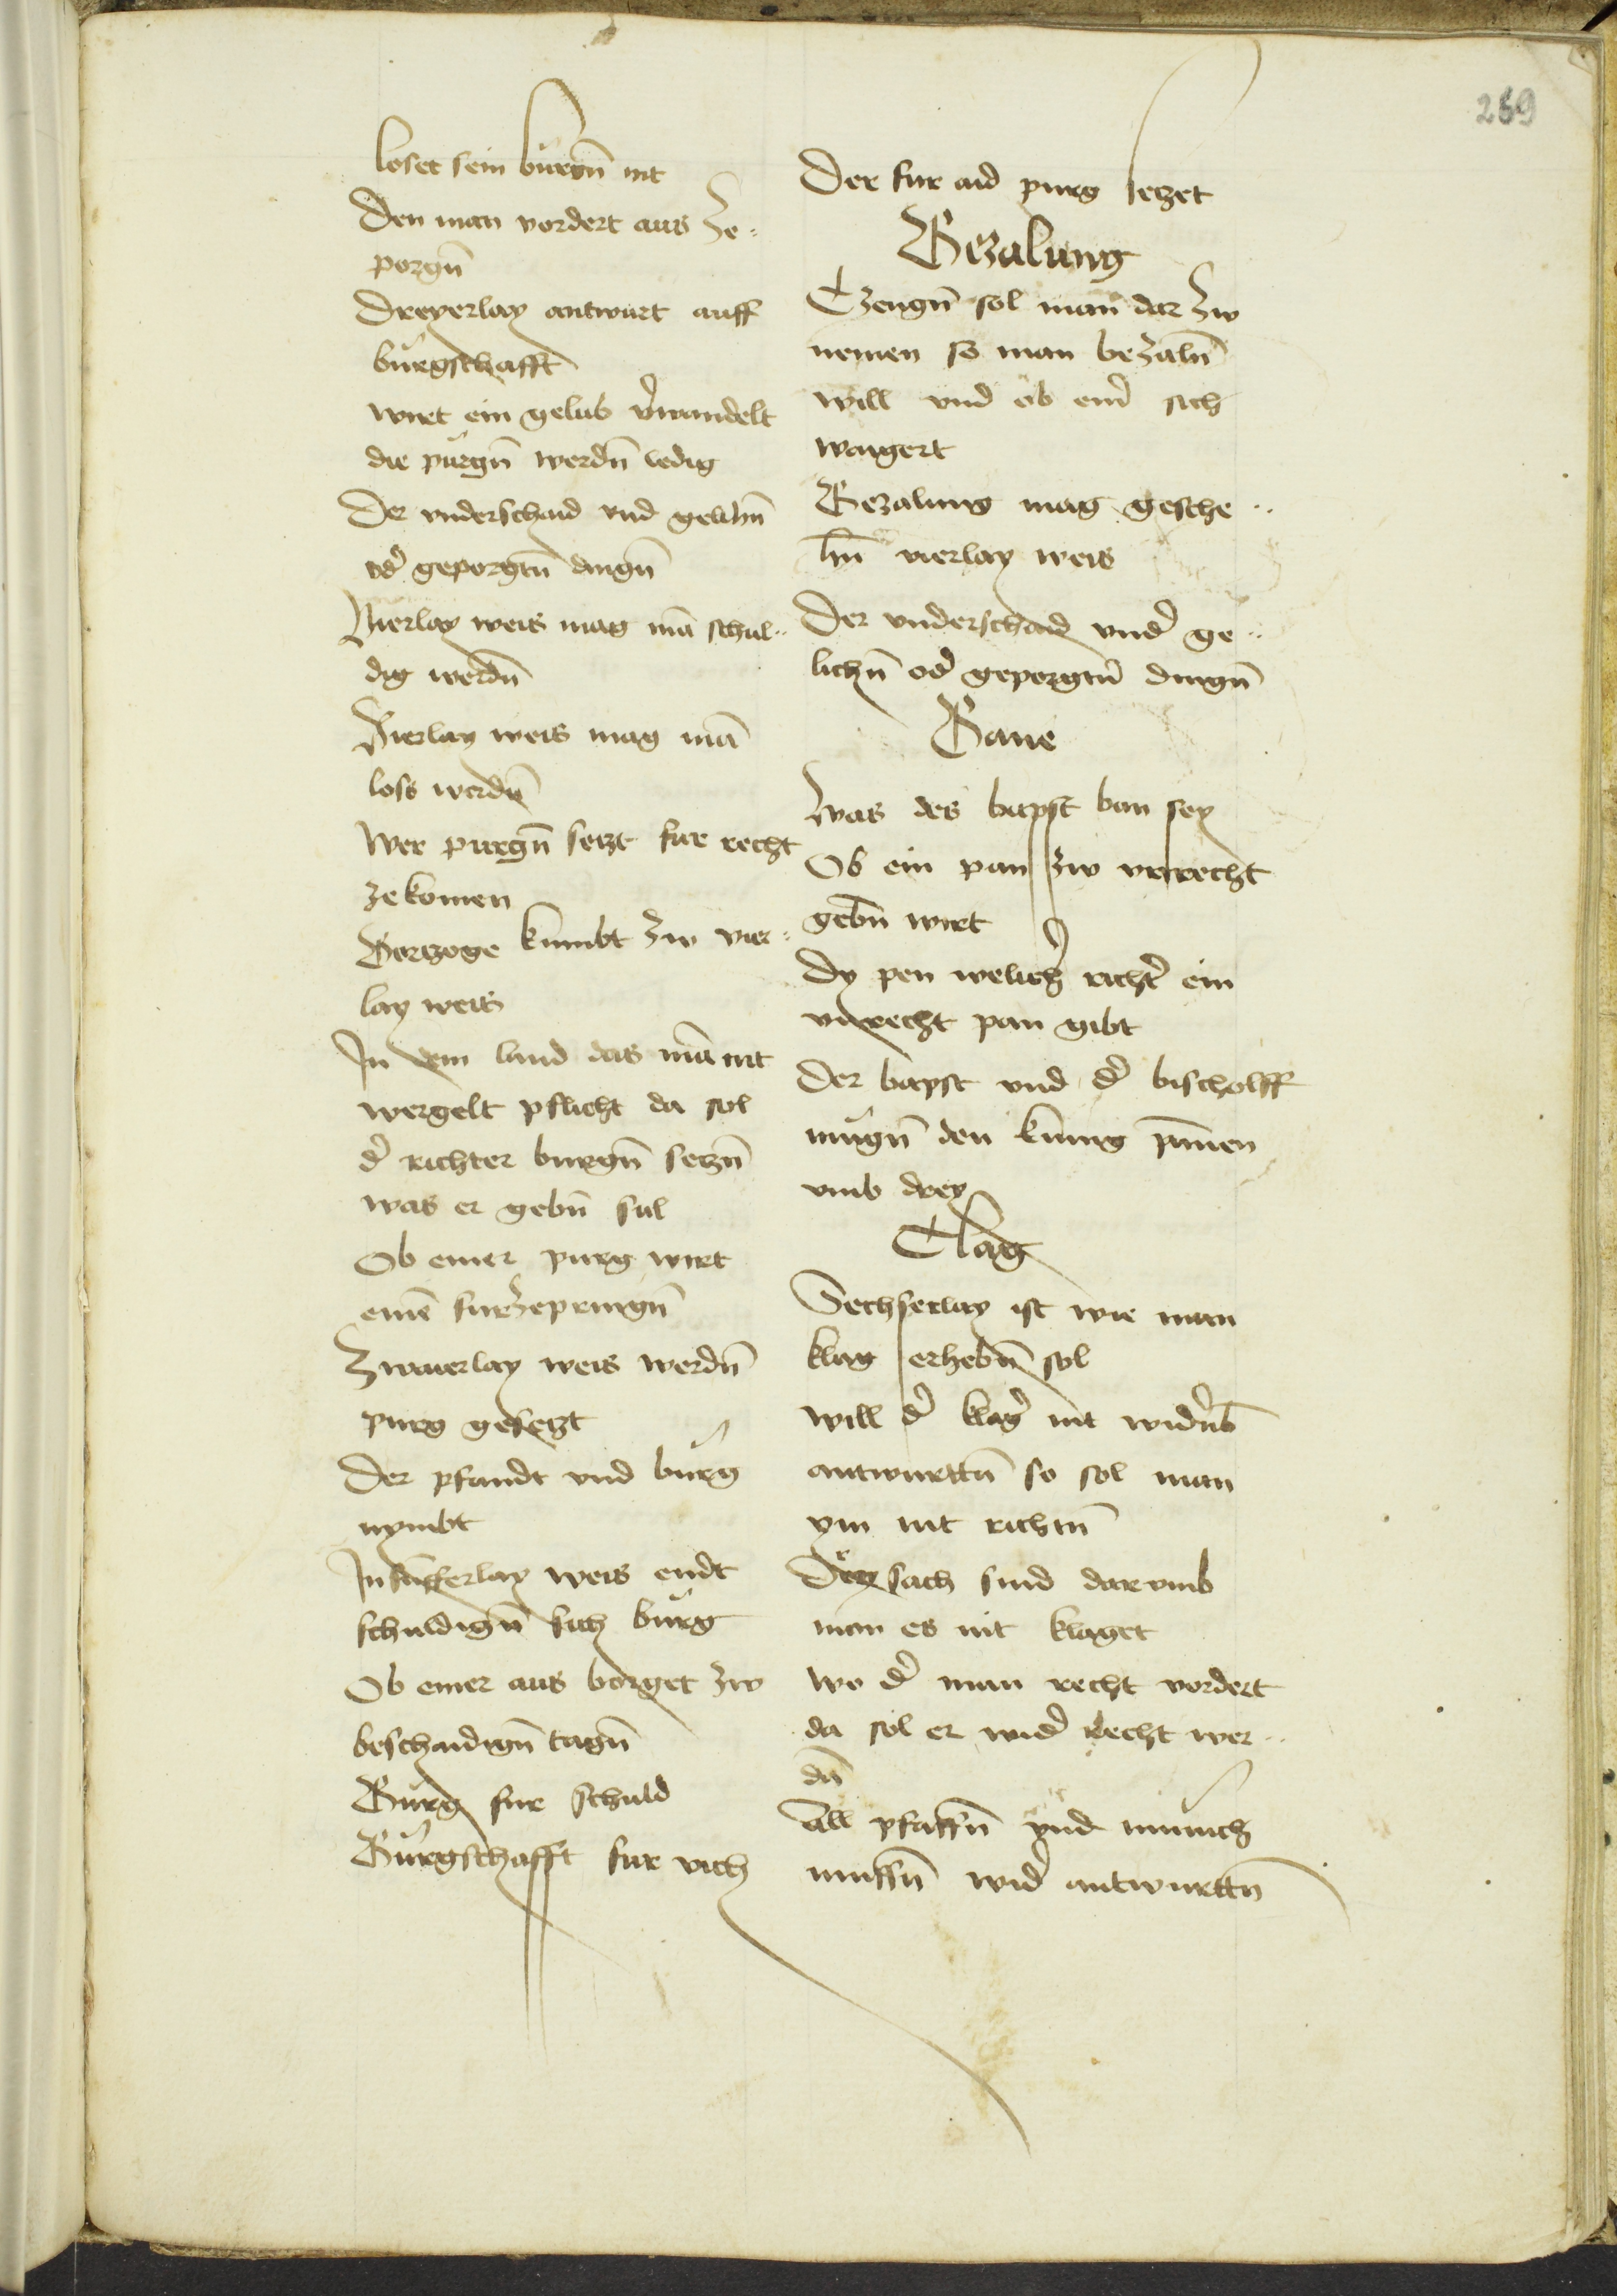 259
loset sein burgn̄ nit
Den man vordert aus ze=
porgn̄
Dreyerlay antwurt auff
burgschafft
wirt ein gelub v̄wandelt
die purgn̄ werdn̄ ledig
Der vnderschaid vnd gelihn̄
od̄ geporgtn̄ dingn̄
Vierlay weis mag mā schul=
dig werdn̄
Vierlay weis mag mā
loss werdn̄
Wer purgn̄ setzt fur recht
ze komen
Vortzoge kumbt zw vier=
lay weis
In dem land das mā nit
wergelt pflicht da sol
d̄ richter burgn̄ setzn̄
was er gebn̄ sul
Ob einer purg wirt
einē furzepringn̄
Zwaierlay weis werdn̄
purg gesetzt
Der pfandt vnd burg
nymbt
In funfferlay weis endt
schuldign̄ sich burg
Ob einer aus borget zw
beschaidign̄ tagn̄
Burg fur schuld
Burgschafft fur vich
Der fur aid purg setzet
Bezalung
Tzeugn̄ sol man dar zw
nemen so man bezaln̄
will vnd ob ein̄ sich
waigert
Bezalung mag gesche=
hn̄ vierlay weis
Der vnderschaid vnd̄ ge=
lichn̄ od̄ geporgtn̄ dingn̄
Bane
Was des bapst ban sey
Ob ein pan zw vnrecht
gebn̄ wirt
Dy pen welich richt̄ ein
vnrecht pan gibt
Der bapst vnd d̄ bischolff
mugn̄ den kunig pānen
vmb drey
Clag
Sechserlay ist wie man
klag erhebn̄ sol
will d̄ klaḡ nit widn̄b
antwurttn̄ so sol man
ym nit richtn̄
Drey sach sind darvmb
man es nit klaget
wo d̄ man recht vordert
da sol er wid̄ recht wer=
dn̄
All pfaffn̄ vnd munich
mussn̄ wid̄ antwurttn̄